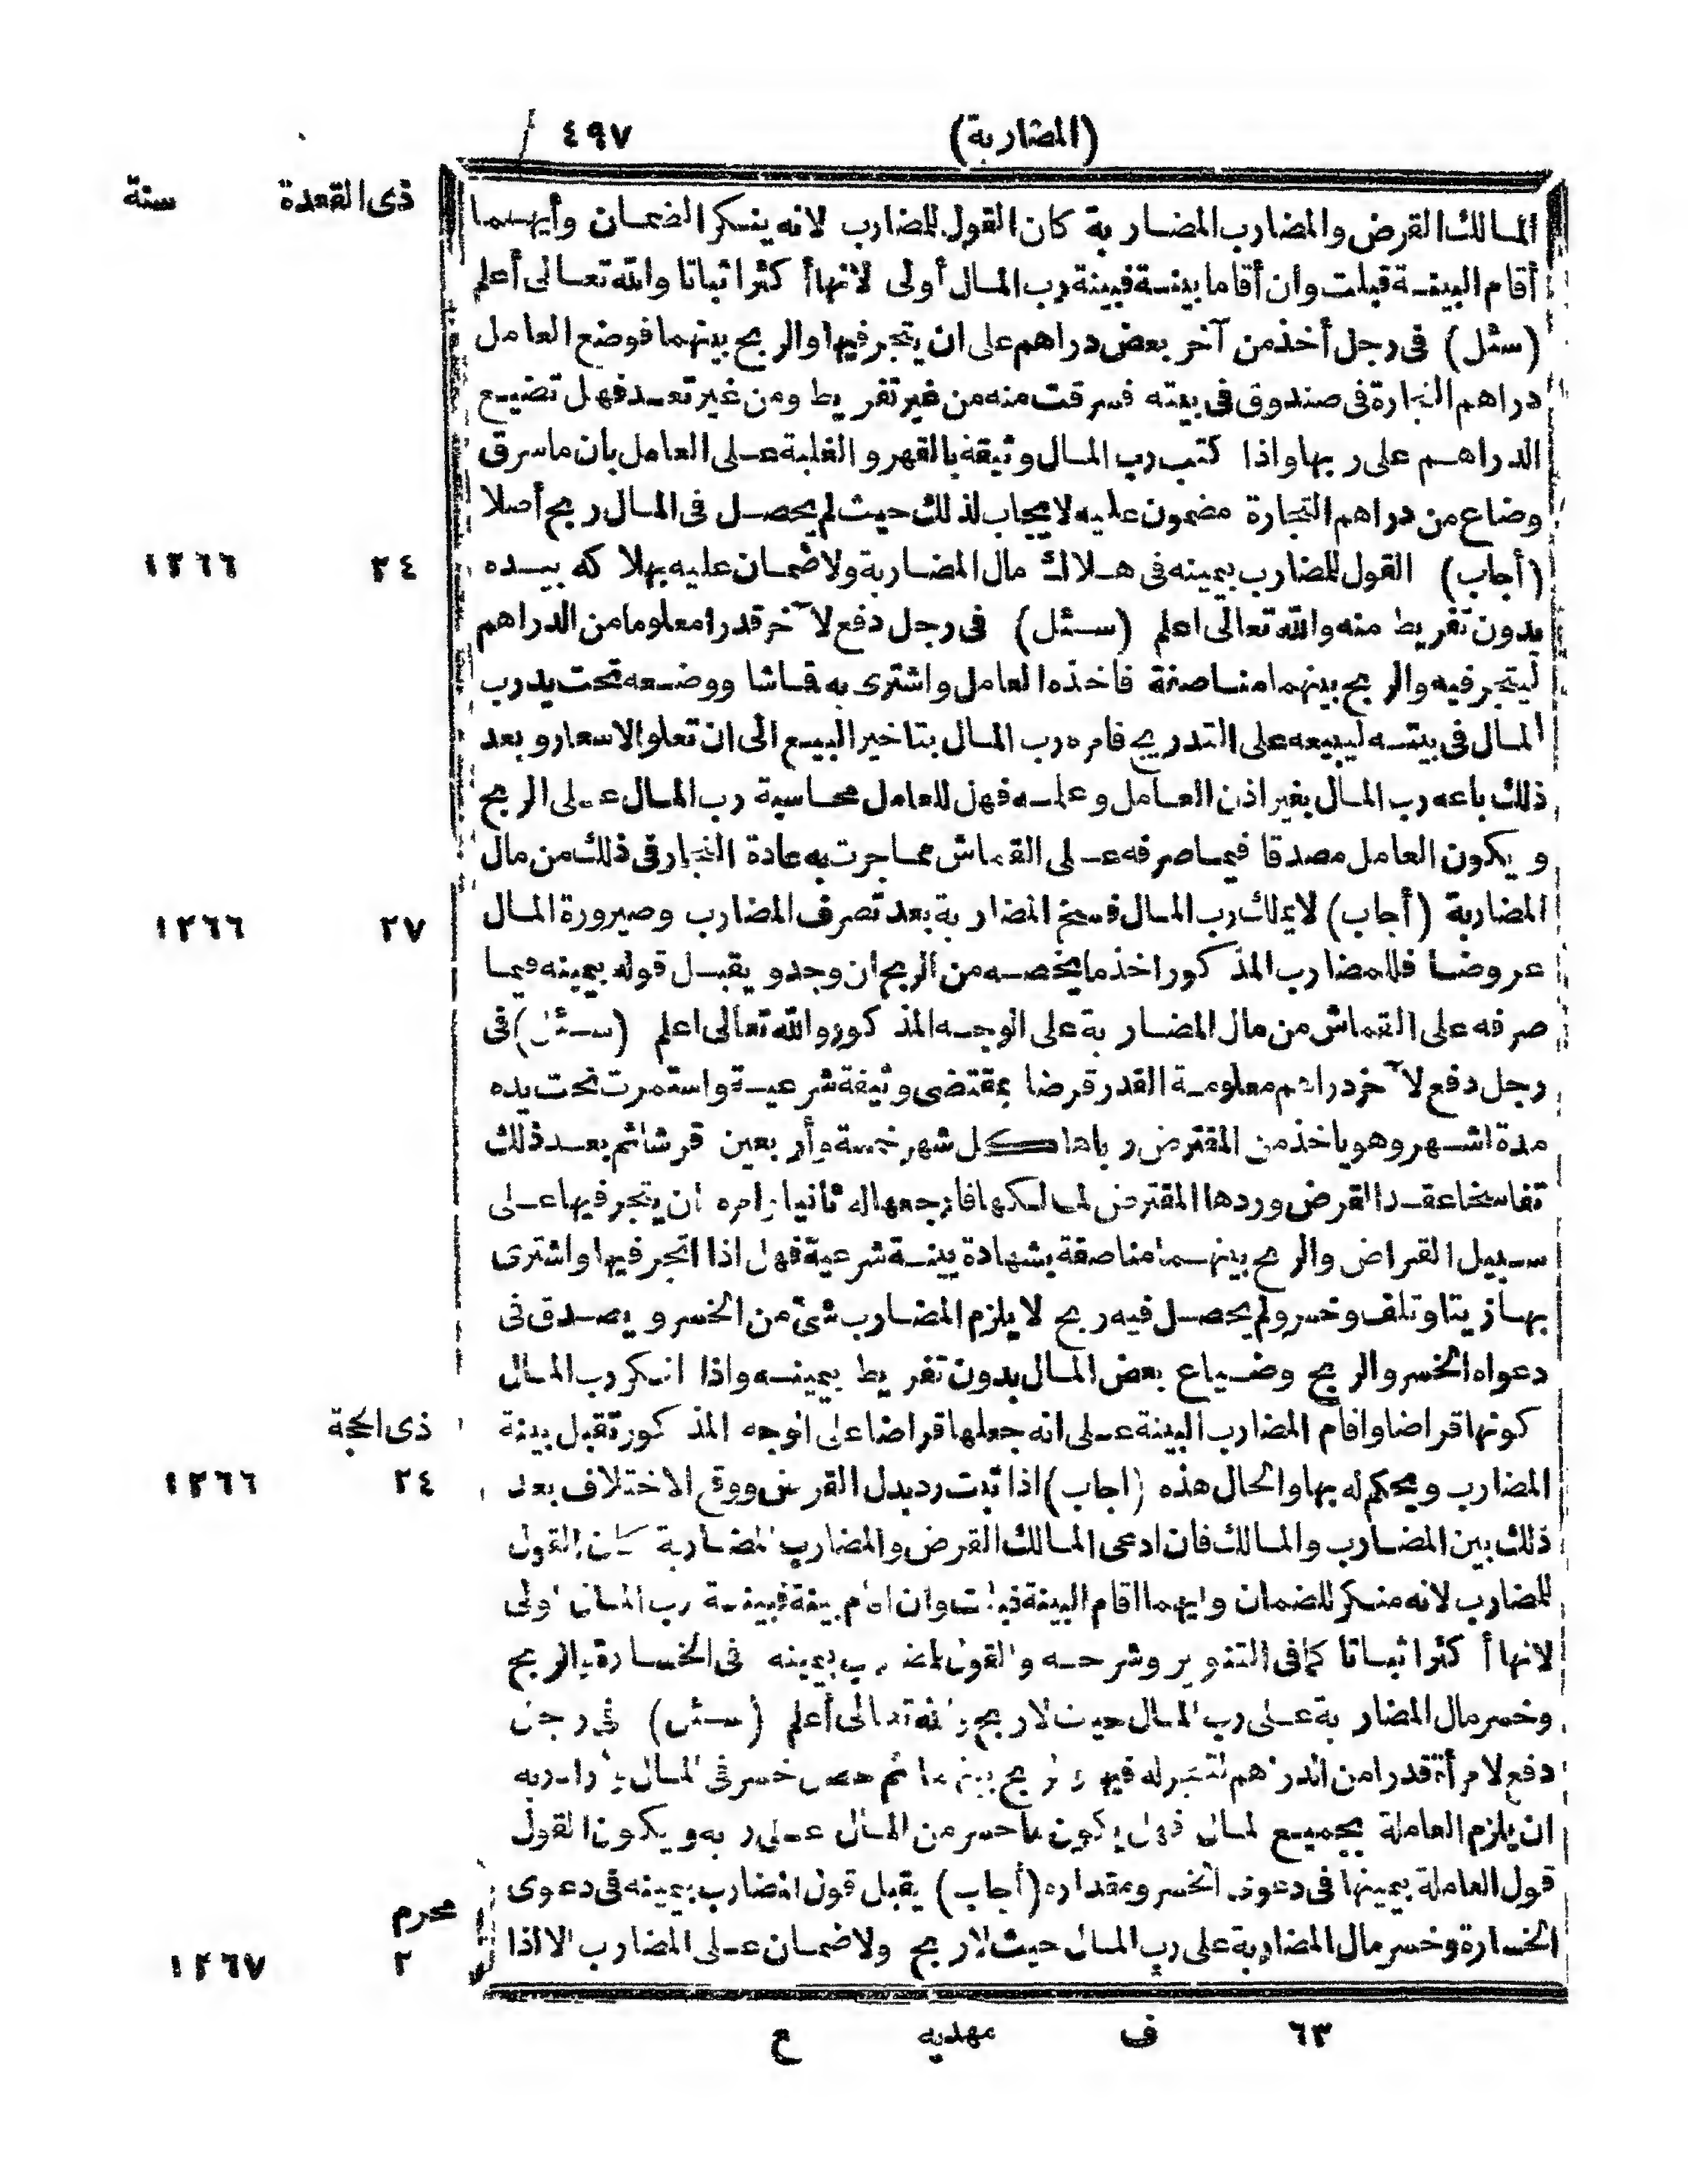 (المضاربة) ٤٩٧
ذى القعدة سنة
المالك القرض والمضارب المضاربة كان القول للمضارب لانه ينكر الضمان وأيهما
أقام البينة قبلت وان أقاما بينة فبينة رب المال أولى لانها أكثر اثباتا والله تعالى أعلم
(سئل) فى رجل أخذ من آخر بعض دراهم على ان يتجر فيها والربح بينهما فوضع العامل
دراهم التجارة فى صندوق فى بيته فسرقت منه من غير تفريط ومن غير تعد فهل تضييع
الدراهم على ربها واذا كتب رب المال وثيقة بالقهر والغلبة على العامل بان ما سرق
وضاع من دراهم التجارة مضمون عليه لا يجاب لذلك حيث لم يحصل فى المال ربح أصلا
(أجاب) القول للمضارب بيمينه فى هلاك مال المضاربة ولا ضمان عليه بهلاكه بيده ٢٤ ١٢٦٦
بدون تفريط منه والله تعالى اعلم (سئل) فى رجل دفع لآخر قدرا معلوما من الدراهم
ليتجر فيه والربح بينهما مناصفة فاخذه العامل واشترى به قماشا ووضعه تحت يد رب
المال فى بيته ليبيعه على التدريج فامره رب المال بتاخير البيع الى ان تعلو الاسعار وبعد
ذلك باعه رب المال بغير اذن العامل وعلمه فهل للعامل محاسبة رب المال على الربح
ويكون العامل مصدقا فيما صرفه على القماش مما جرت به عادة التجار فى ذلك من مال
المضاربة (أجاب) لا يملك رب المال فسخ المضاربة بعد تصرف المضارب وصيرورة المال ٢٧ ١٢٦٦
عروضا فللمضارب المذكور اخذ ما يخصه من الربح ان وجد ويقبل قوله بيمينه فيما
صرفه على القماش من مال المضاربة على الوجه المذكور والله تعالى اعلم (سئل) فى
رجل دفع لآخر دراهم معلومة القدر قرضا بمقتضى وثيقة شرعية واستمرت تحت يده
مدة اشهر وهو ياخذ من المقترض رباها كل شهر خمسة وأربعين قرشا ثم بعد ذلك
تفاسخا عقد القرض وردها المقترض لمالكها فارجعها له ثانيا وامره ان يتجر فيها على
سبيل القراض والربح بينهما مناصفة بشهادة بينة شرعية فهل اذا اتجر فيها واشترى
بها زيتا وتلف وخسر ولم يحصل فيه ربح لا يلزم المضارب شئ من الخسر ويصدق فى
دعواه الخسر والربح وضياع بعض المال بدون تفريط بيمينه واذا انكر رب المال
كونها قراضا واقام المضارب البينة على انه جعلها قراضا على الوجه المذكور تقبل بينة ذى الحجة
المضارب ويحكم له بها والحال هذه (اجاب) اذا ثبت رد بدل القرض ووقع الاختلاف بعد ٢٤ ١٢٦٦
ذلك بين المضارب والمالك فان ادعى المالك القرض والمضارب المضاربة كان القول
للمضارب لانه منكر للضمان وايهما اقام البينة قبلت وان اقام بينة فبينة رب المال اولى
لانها أكثر اثباتا كما فى التنوير وشرحه والقول للمضارب بيمينه فى الخسارة والربح
وخسر مال المضاربة على رب المال حيث لا ربح والله تعالى أعلم (سئل) فى رجل
دفع لامرأة قدرا من الدراهم لتتجر له فيها والربح بينهما ثم حصل خسر فى المال واراد ربه
ان يلزم العاملة بجميع المال فهل يكون ما خسر من المال على ربه ويكون القول
قول العاملة بيمينها فى دعوى الخسر ومقداره (أجاب) يقبل قول المضارب بيمينه فى دعوى محرم
الخسارة وخسر مال المضاربة على رب المال حيث لا ربح ولا ضمان على المضارب الا اذا ٢ ١٢٦٧
٦٣ ف مهديه ع